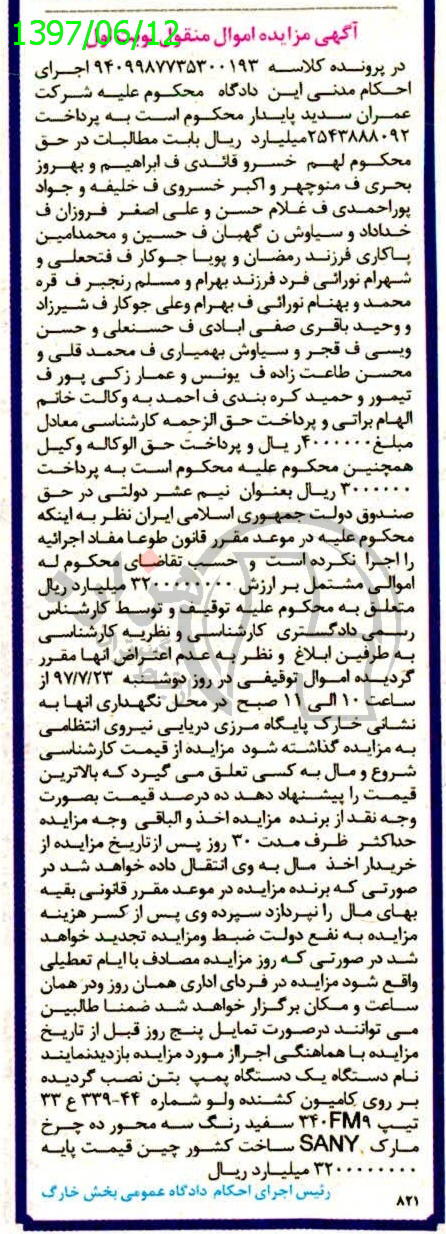 1397/06/12
آگهی مزایده اموال منقول نوبت اول
در پرونده کلاسه ۹۴۰۹۹۸۷۷۳۵۳۰۰۱۹۳ اجرای
احکام مدنی این دادگاه محکوم علیه شرکت
عمران سدید پایدار محکوم است به پرداخت
۲۵۴۳۸۸۸۰۹۲میلیارد ریال بابت مطالبات در حق
محکوم لهم خسرو قائدی ف ابراهیم و بهروز
بحری ف منوچهر و اکبر خسروی ف خلیفه و جواد
پوراحمدی ف غلام حسن و علی اصغر فروزان ف
خداداد و سیاوش ن گهبان ف حسین و محمدامین
پاکاری فرزند رمضان و پویا جوکار ف فتحعلی و
شهرام نورائی فرد فرزند بهرام و مسلم رنجبر ف قره
محمد و بهنام نورائی ف بهرام وعلی جوکار ف شیرزاد
و وحید باقری صفی ابادی ف حسنعلی و حسن
ویسی ف قجر و سیاوش بهمیاری ف محمد قلی و
محسن طاعت زاده ف یونس و عمار زکی پور ف
تیمور و حمید کره بندی ف احمد به وکالت خانم
الهام براتی و پرداخت حق الزحمه کارشناسی معادل
مبلغ۴۰۰۰۰۰۰ر یال و پرداخت حق الوکاله وکیل
همچنین محکوم علیه محکوم است به پرداخت
۳۰۰۰۰۰۰ ریال بعنوان نیم عشر دولتی در حق
صندوق دولت جمهوری اسلامی ایران نظر به اینکه
محکوم علیه در موعد مقرر قانون طوعا مفاد اجرائیه
را اجرا نکرده است و حسب تقاضای محکوم له
اموالی مشتمل بر ارزش ۳۲۰۰۰۰۰۰۰۰ میلیارد ریال
متعلق به محکوم علیه توقیف و توسط کارشناس
رسمی دادگستری کارشناسی و نظریه کارشناسی
به طرفین ابلاغ و نظر به عدم اعتراض آنها مقرر
گردیده اموال توقیفی در روز دوشنبه ۹۷/۷/۲۳ از
ساعت ۱۰ الی ۱۱ صبح در محل نگهداری انها به
نشانی خارک پایگاه مرزی دریایی نیروی انتظامی
به مزایده گذاشته شود مزایده از قیمت کارشناسی
شروع و مال به کسی تعلق می گیرد که بالاترین
قیمت را پیشنهاد دهد ده درصد قیمت بصورت
وجه نقد از برنده مزایده اخذ و الباقی وجه مزایده
حداکثر ظرف مدت ۳۰ روز پس ازتاریخ مزایده از
خریدار اخذ مال به وی انتقال داده خواهد شد در
صورتی که برنده مزایده در موعد مقرر قانونی بقیه
بهای مال را نپردازد سپرده وی پس از کسر هزینه
مزایده به نفع دولت ضبط ومزایده تجدید خواهد
شد در صورتی که روز مزایده مصادف با ایام تعطیلی
واقع شود مزایده در فردای اداری همان روز ودر همان
ساعت و مکان برگزار خواهد شد ضمنا طالبین
می توانند درصورت تمایل پنج روز قبل از تاریخ
مزایده با هماهنگی اجرااز مورد مزایده بازدیدنمایند
نام دستگاه یک دستگاه پمپ بتن نصب گردیده
بر روی کامیون کشنده ولو شماره ۴۴-۳۳۹ ع ۳۳
تیپ ۳۴۰FM۹ سفید رنگ سه محور ده چرخ
مارک SANY ساخت کشور چین قیمت پایه
۳۲۰۰۰۰۰۰۰۰ میلیارد ریال
رئیس اجرای احکام دادگاه عمومی بخش خارگ
۸۲۱